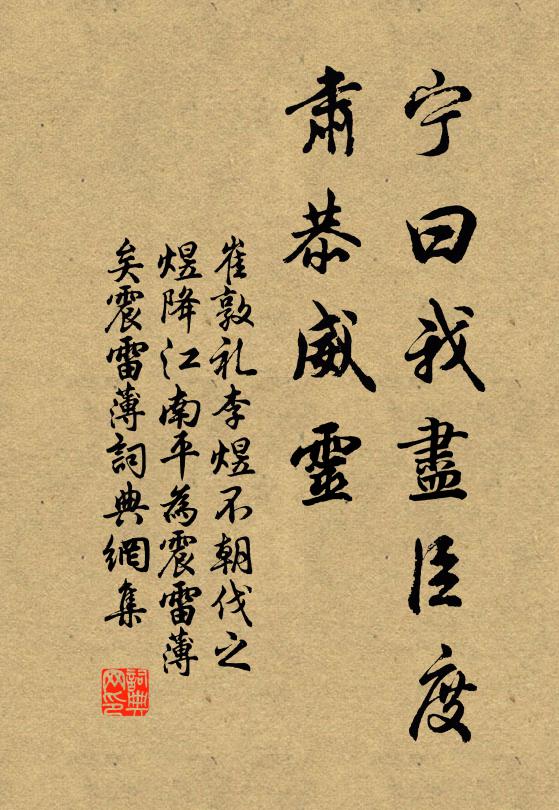 宁曰我盡臣度
肅恭威靈
崔敦礼李煜不朝伐之
煜降江南平為震雷薄
矣震雷薄詞典網集
詞典
网印